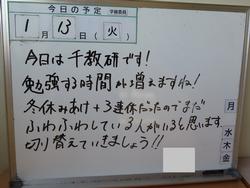 今日の予定 学級委員
1月13日(火)
今日は千教研です!
勉強する時間が増えますね!
冬休みあけ+3連休だったのでまだ
ふわふわしている人がいると思います。
切り替えていきましょう!!
月
水
木
金